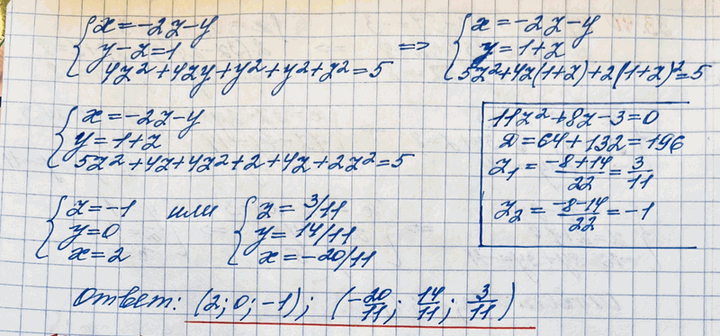 x=-2z-y
y-z=1
4z²+4zy+y²+y²+z²=5
=>
x=-2z-y
y=1+z
5z²+4z(1+z)+2(1+z)²=5
x=-2z-y
y=1+z
5z²+4z+4z²+2+4z+2z²=5
11z²+8z-3=0
D=64+132=196
z₁=\frac{-8+14}{22}=\frac{3}{11}
z₂=\frac{-8-14}{22}=-1
z=-1
y=0
x=2
или
z=3/11
y=14/11
x=-20/11
Ответ: (2; 0; -1); (-\frac{20}{11}; \frac{14}{11}; \frac{3}{11})